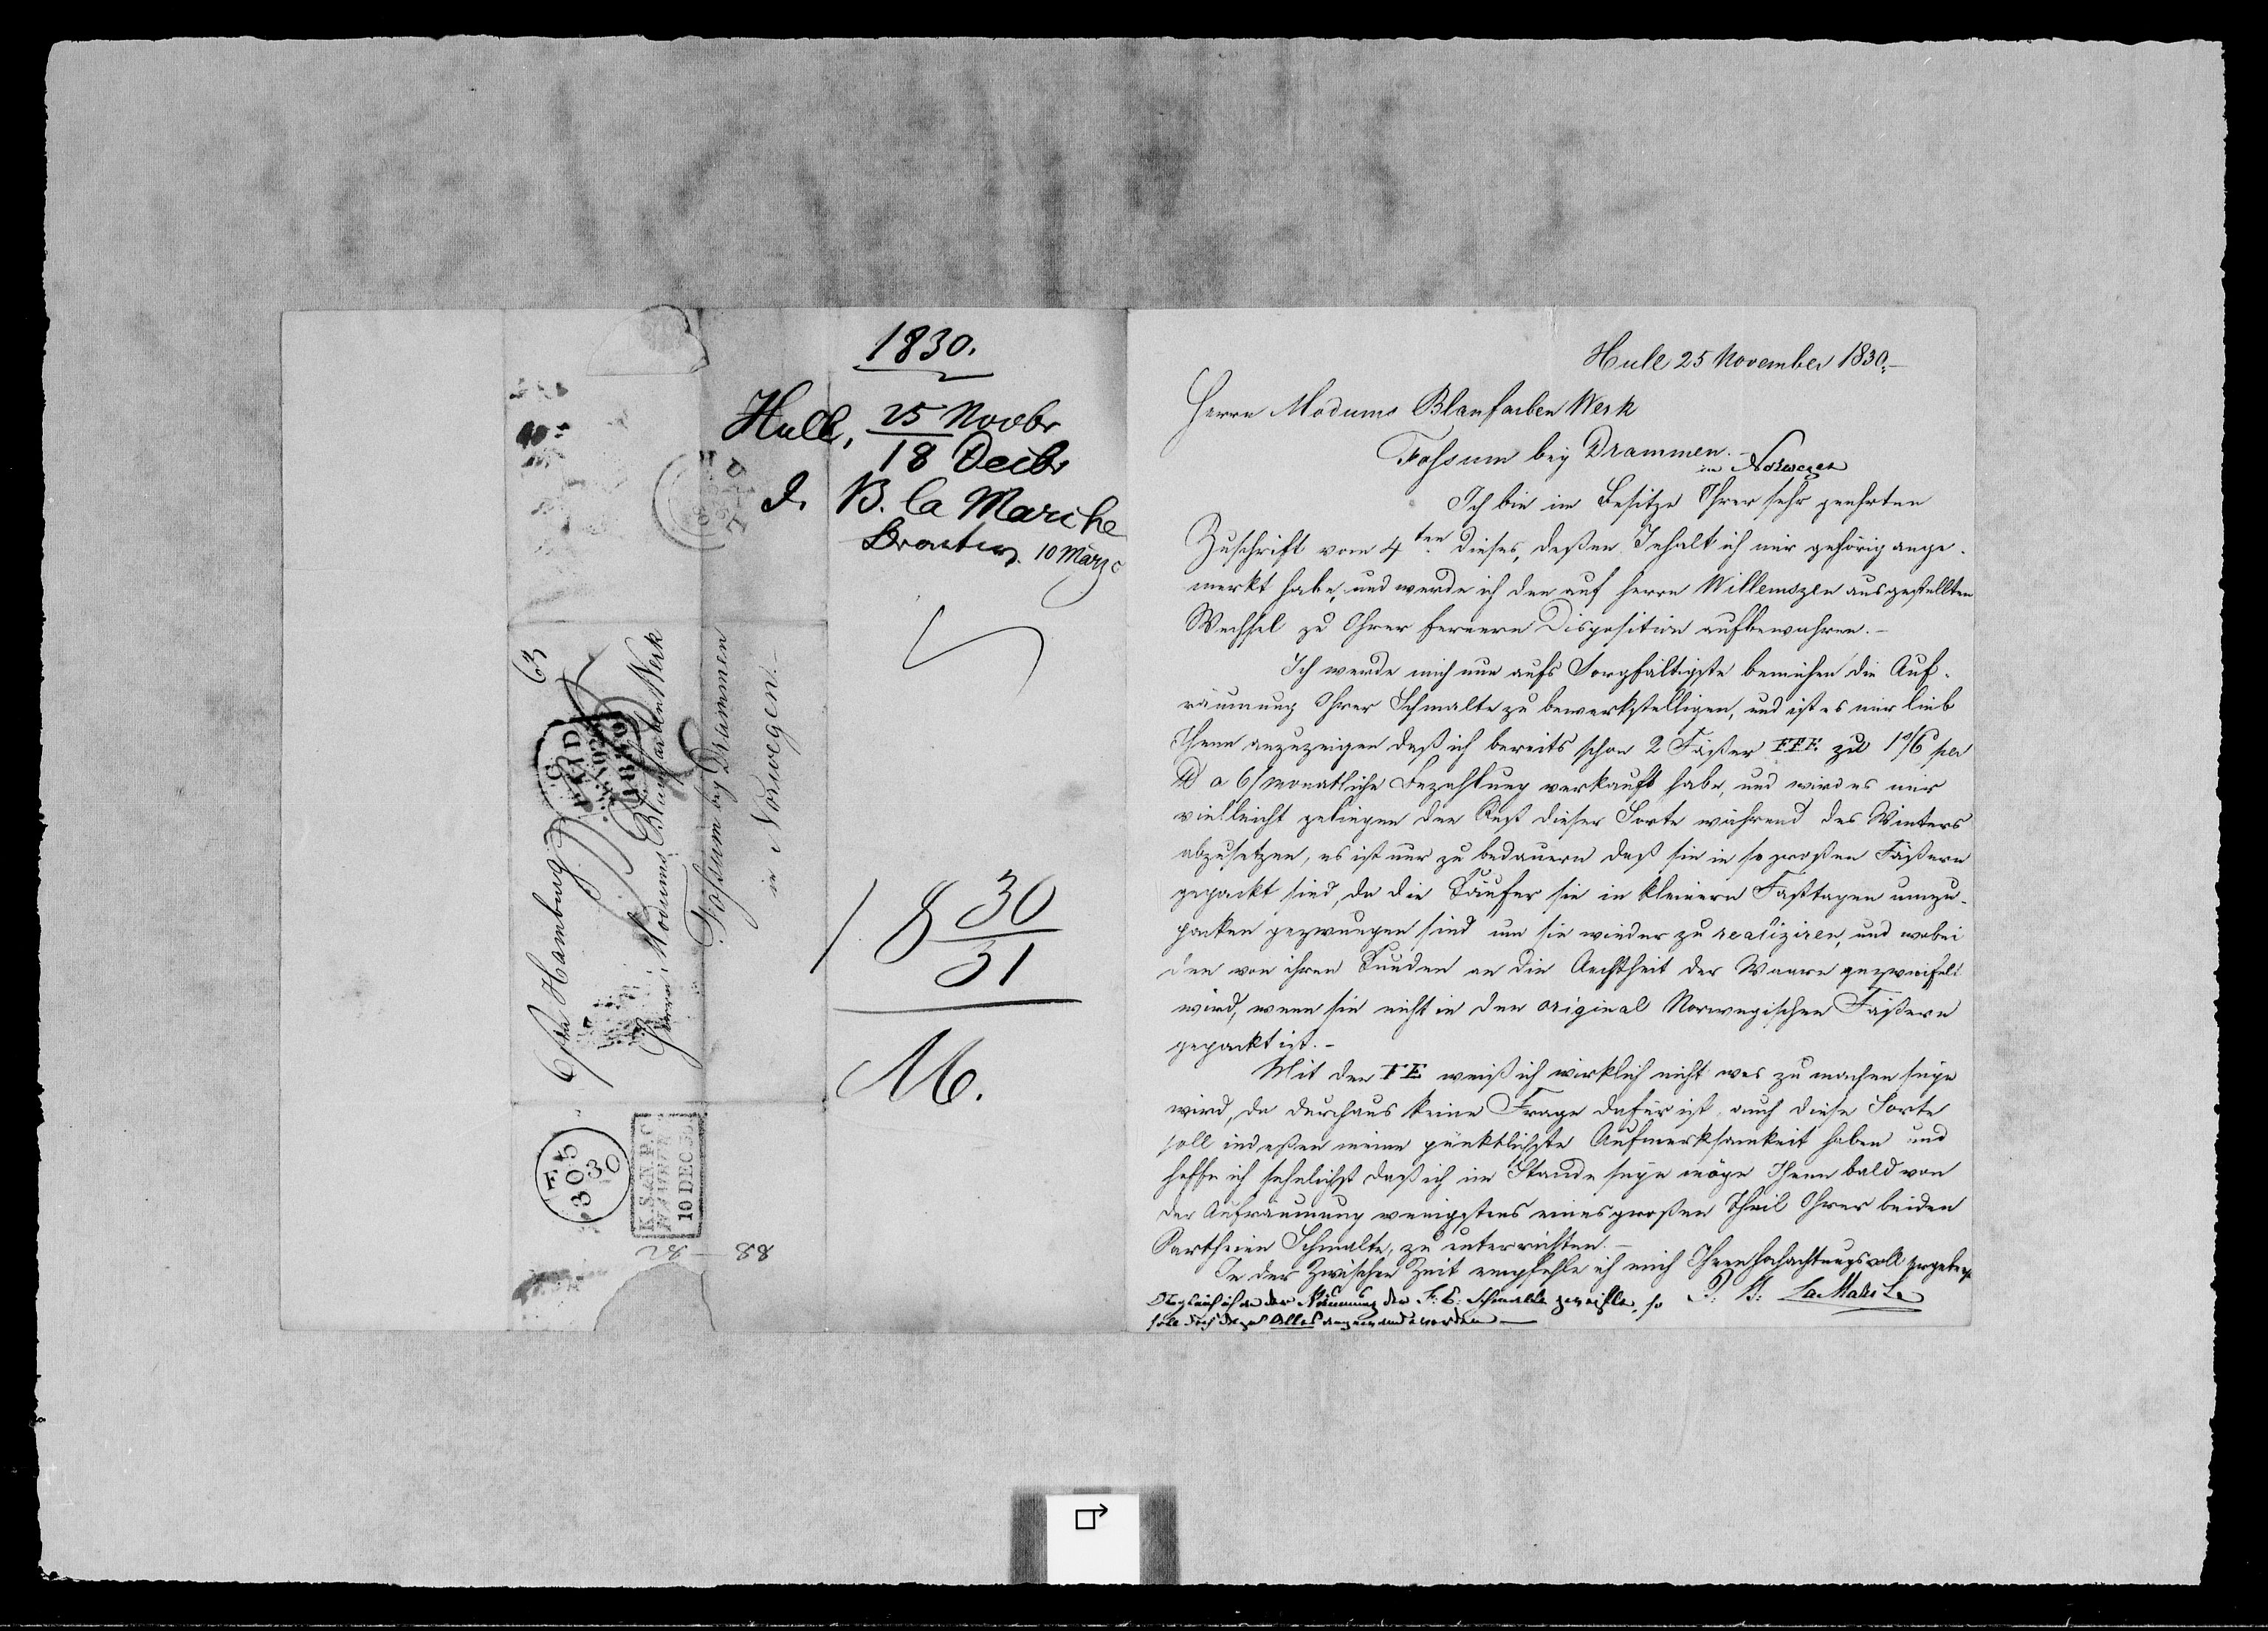 1830.
Hull, 25 Novbr
18 Decbr
J. B. la Marche
10 März
8 30
31
M.
63
PAID
p/m Hamburg
Herrn Modums Blaufarben Werk
Fossum by Drammen
in Norwegen.
F 305 30
K.S.&N.P.C.
HAMBURG
10 DEC. 30
Hull 25 November 1830.-
Herrn Modums Blaufarben Werk
Fossum bey Drammen.
in Norwegen
Ich bin im Besitze Ihrer sehr geehrten
Zuschrift vom 4ten dieses, deßen Inhalt ich mir gehörig ange-
merkt habe, und werde ich den auf Herrn Willemszen ausgestellten
Wechsel zu Ihrer fernern Disposition aufbewahren.-
Ich werde mich nun aufs Sorgfältigste bemühen die Auf-
räumung Ihrer Schmalte zu bewerkstelligen, und ist es mir lieb
Ihnen anzuzeigen daß ich bereits schon 2 Fäßer FFE zu 1s/6d per
℔ a 6/monatliche Bezahlung verkauft habe, und wird es mir
vielleicht gelingen den Rest dieser Sorte während des Winters
abzusetzen, es ist nur zu bedauern daß sie in so großen Fäßern
gepackt sind, da die Käufer sie in kleinern Fasttagen umzu-
packen gezwungen sind um sie wieder zu realiziren, und wobei
den von ihren Kunden an die Aechtheit der Waare gezweifelt
wird, wenn sie nicht in den original Norwegischen Fäßern
gepackt ist.-
Mit den FE weiß ich wirklich nicht was zu machen seyn
wird, da durchaus keine Frage dafür ist, auch diese Sorte
soll indeßen meine pünktlichste Aufmerksamkeit haben und
hoffe ich sehnlichst daß ich im Stande seyn möge Ihnen bald von
der Aufräumung wenigstens eines großen Theil Ihrer beiden
Partheien Schmalte, zu unterrichten.-
In der Zwischen Zeit empfehle ich mich Ihnen hochachtungsvoll ergebenst
J. B. La Marche
Obgleich ich an der Räumung der F. E. Schmalte zweifle, so
soll doch dazu Alles angewandt werden